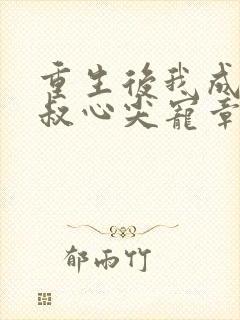 重生後我成
叔心尖寵章
郁雨竹